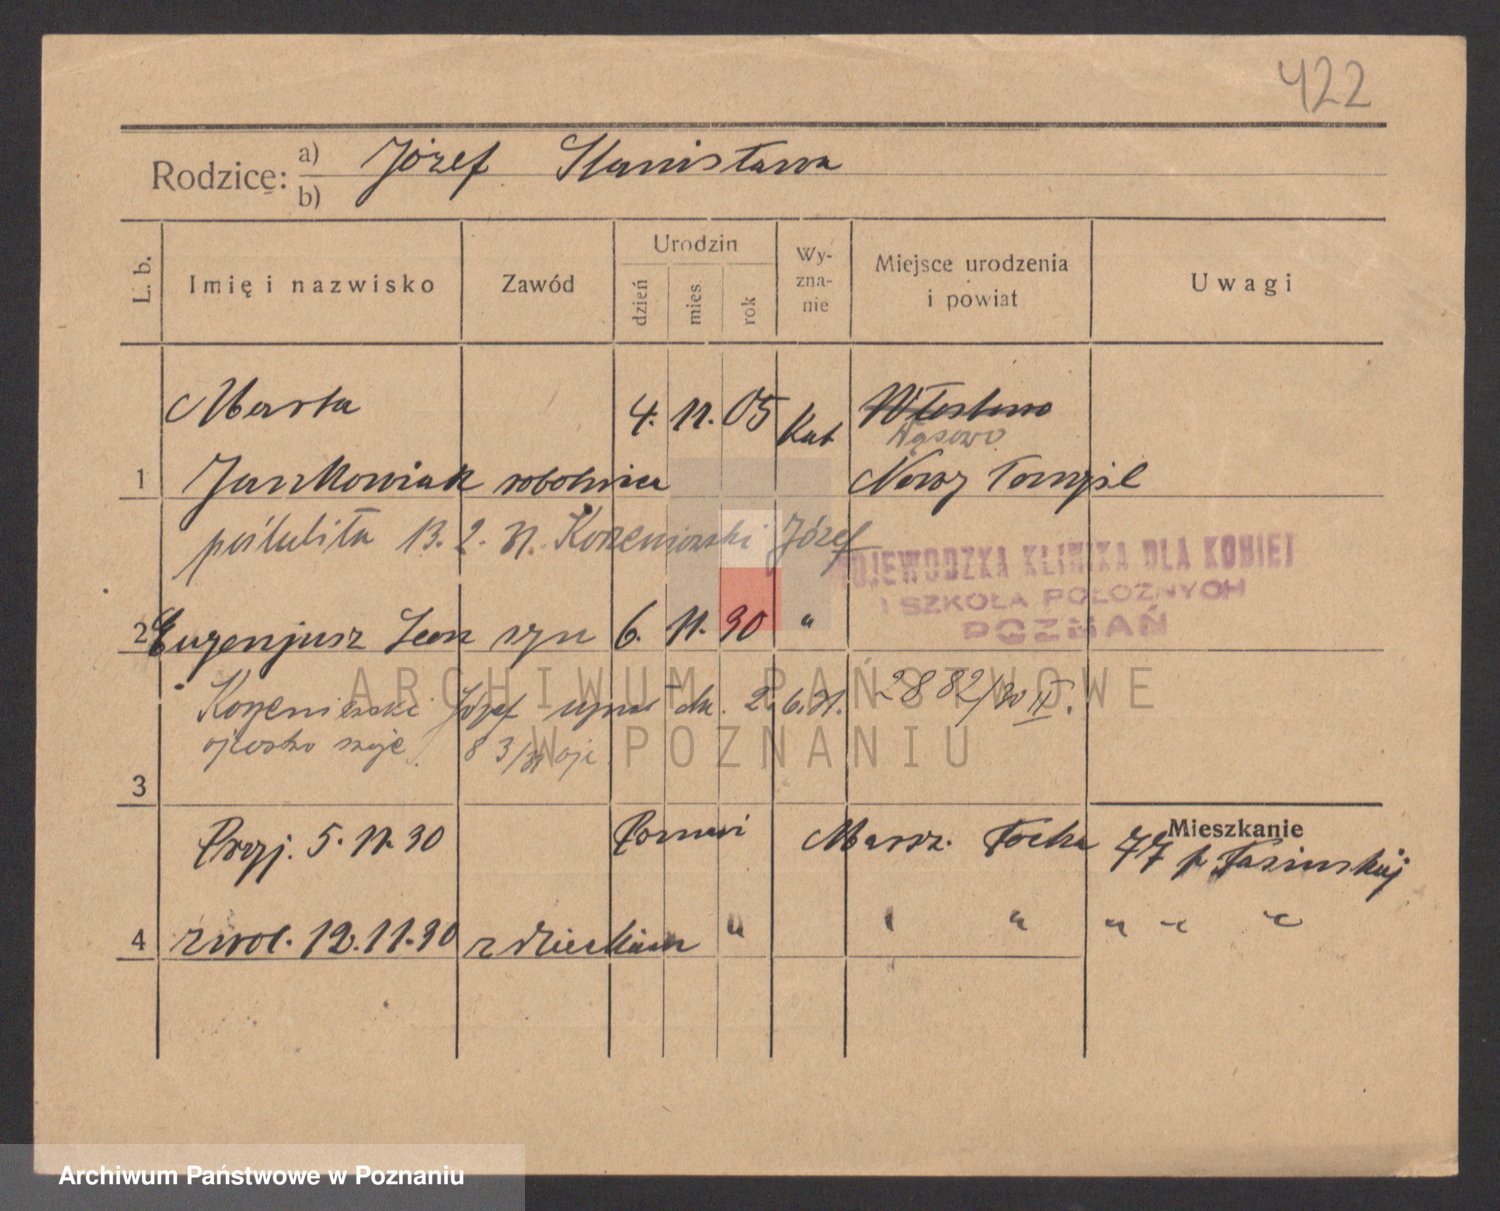 422
Rodzice: a) b) Józef Stanisława
L. b. Imię i nazwisko Zawód Urodzin dzień mies. rok Wy-zna-nie Miejsce urodzenia i powiat Uwagi
Marta 4. 11. 05 Kat
Wąsowo
1 Jankowiak robotnica Nowy Tomyśl
poślubiła 13. 2. 31. Korzeniowski Józef
WOJEWÓDZKA KLINIKA DLA KOBIET
I SZKOŁA POŁOŻNYCH
POZNAŃ
2 Eugenjusz Leon syn 6. 11. 30 "
Józef uznał dn. 2. 6. 31. 2882/30 II.
ojcostwo swoje 83/31
3
Mieszkanie
Przyj. 5. 11. 30 Poznań Marsz. Focha 77 p.
4 zwol. 12. 11. 30 z dzieckiem " " " " " "
ARCHIWUM PAŃSTWOWE
W POZNANIU
Archiwum Państwowe w Poznaniu